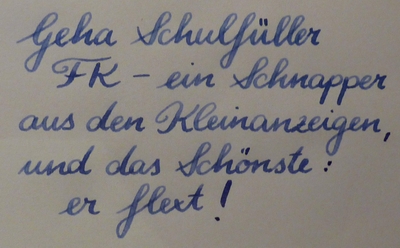 Geha Schulfüller
FK - ein Schnapper
aus den Kleinanzeigen,
und das Schönste:
er flext!